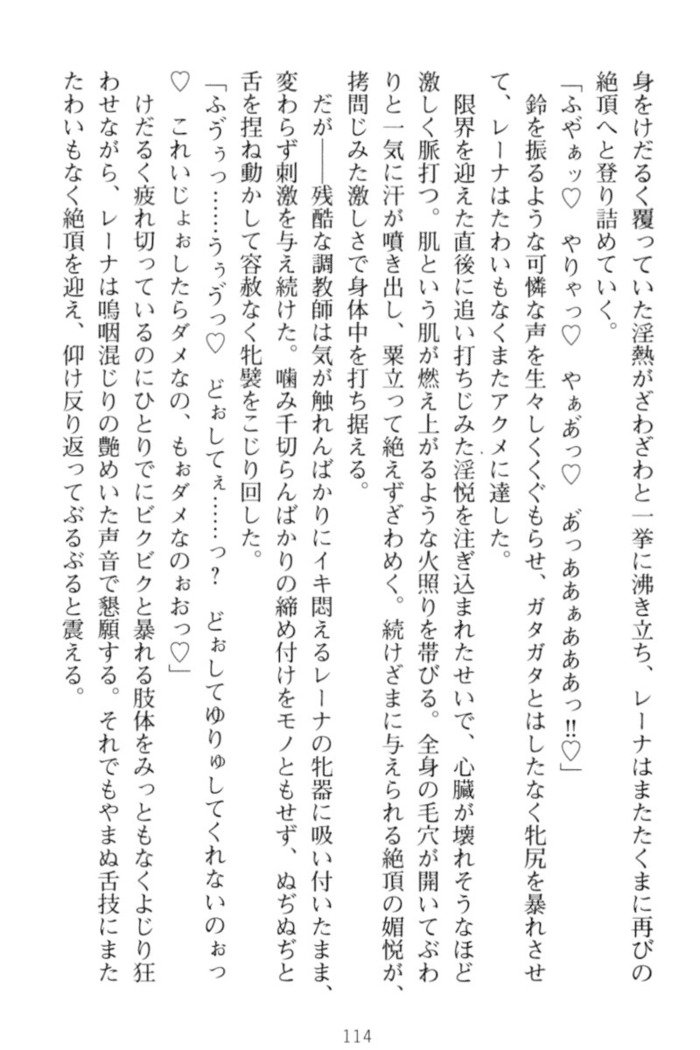 身をけだるく覆っていた淫熱がざわざわと一挙に沸き立ち、レーナはまたたくまに再びの
絶頂へと登り詰めていく。
「ふやぁッ♡　やりゃっ♡　やぁあ゙っ♡　あ゙っああぁあああっ!!♡」
鈴を振るような可憐な声を生々しくくぐもらせ、ガタガタとはしたなく牝尻を暴れさせ
て、レーナはたわいもなくまたアクメに達した。
限界を迎えた直後に追い打ちじみた淫悦を注ぎ込まれたせいで、心臓が壊れそうなほど
激しく脈打つ。肌という肌が燃え上がるような火照りを帯びる。全身の毛穴が開いてぶわ
りと一気に汗が噴き出し、粟立って絶えずざわめく。続けざまに与えられる絶頂の媚悦が、
拷問じみた激しさで身体中を打ち据える。
だが――残酷な調教師は気が触れんばかりにイキ悶えるレーナの牝器に吸い付いたまま、
変わらず刺激を与え続けた。噛み千切らんばかりの締め付けをモノともせず、ぬぢぬぢと
舌を捏ね動かして容赦なく牝襞をこじり回した。
「ふゔぅっ……うぅゔっ♡　どぉしてぇ……っ?　どぉしてゆりゅしてくれないのぉっ
♡　これいじょぉしたらダメなの、もぉダメなのぉおっ♡」
けだるく疲れ切っているのにひとりでにビクビクと暴れる肢体をみっともなくよじり狂
わせながら、レーナは嗚咽混じりの艶めいた声音で懇願する。それでもやまぬ舌技にまた
たわいもなく絶頂を迎え、仰け反り返ってぶるぶると震える。
114